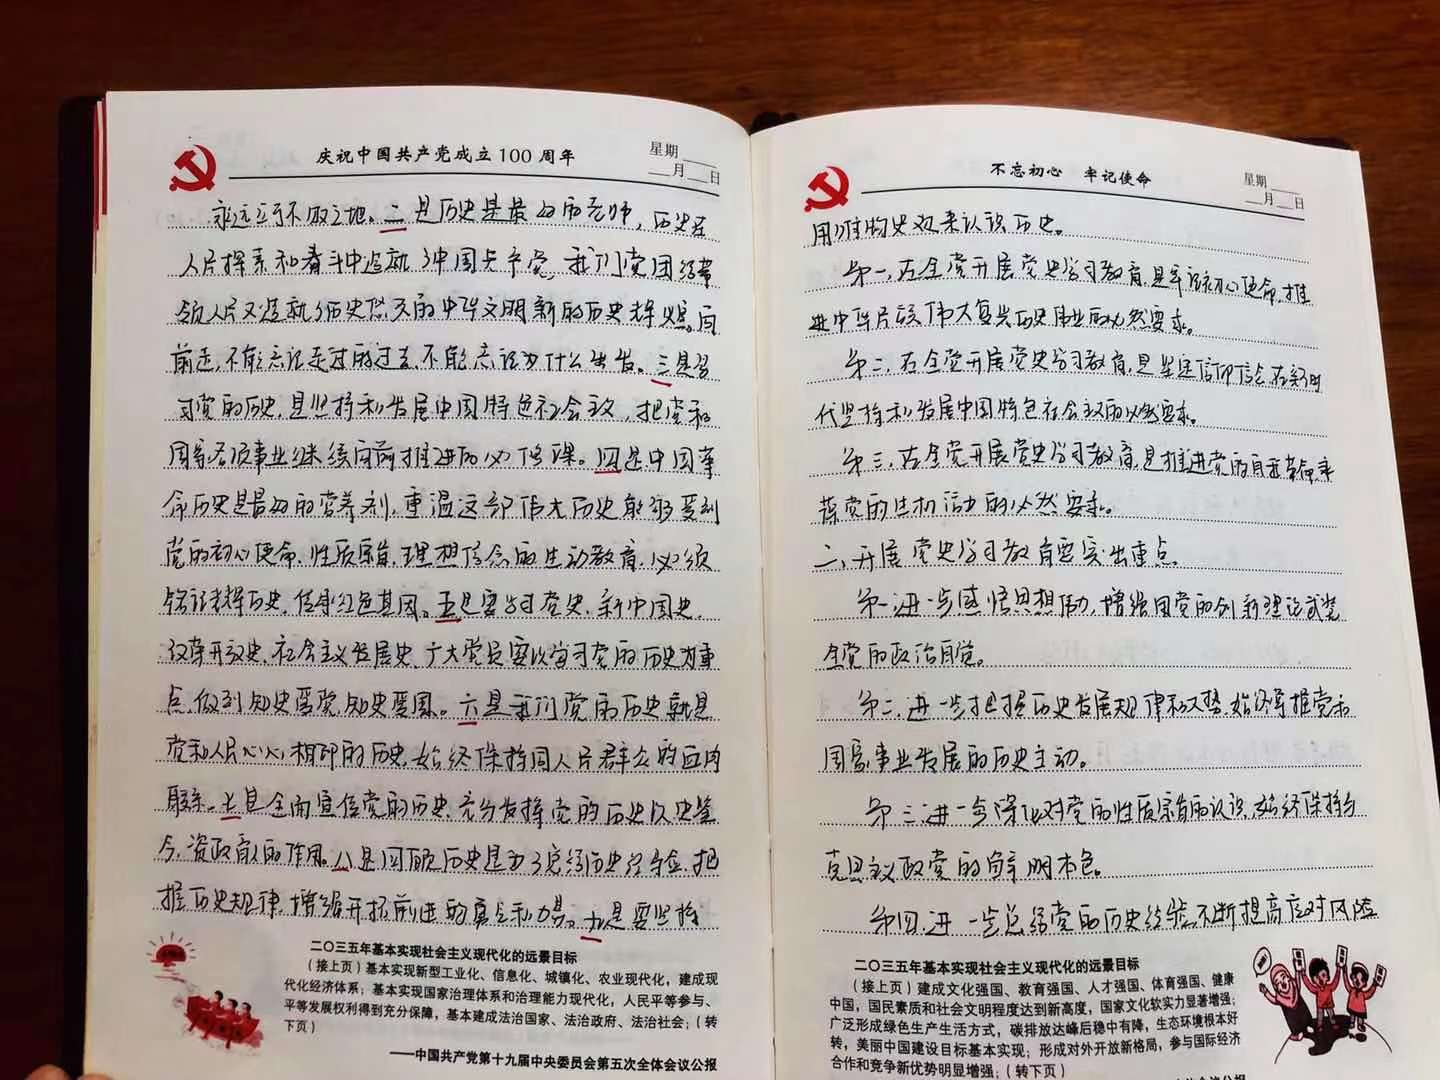 庆祝中国共产党成立100周年
星期
月 日
永远立于不败之地。二是历史是最好的老师，历史在
人民探索和奋斗中造就了中国共产党，我们党团结带
领人民又造就了历史悠久的中华文明新的历史辉煌。向
前走，不能忘记走过的过去，不能忘记为什么出发。三是学
习党的历史，是坚持和发展中国特色社会主义，把党和
国家各项事业继续向前推进的必修课。四是中国革
命历史是最好的营养剂，重温这部伟大历史能够受到
党的初心使命、性质宗旨、理想信念的生动教育，必须
铭记光辉历史，传承红色基因。五是要学习党史、新中国史、
改革开放史、社会主义发展史，广大党员要以学习党的历史为重
点，做到知史爱党，知史爱国。六是我们党的历史就是
党和人民心心相印的历史，始终保持同人民群众的血肉
联系。七是全面宣传党的历史，充分发挥党的历史以史鉴
今、资政育人的作用。八是回顾历史是为了总结历史经验、把
握历史规律，增强开拓前进的勇气和力量。九是要坚持
二〇三五年基本实现社会主义现代化的远景目标
（接上页）基本实现新型工业化、信息化、城镇化、农业现代化，建成现
代化经济体系；基本实现国家治理体系和治理能力现代化，人民平等参与、
平等发展权利得到充分保障，基本建成法治国家、法治政府、法治社会；（转
下页）
——中国共产党第十九届中央委员会第五次全体会议公报
不忘初心 牢记使命
星期
月 日
用唯物史观来认识历史。
第一，在全党开展党史学习教育，是牢记初心使命，推
进中华民族伟大复兴历史伟业的必然要求。
第二，在全党开展党史学习教育，是坚定信仰信念，在新时
代坚持和发展中国特色社会主义的必然要求。
第三，在全党开展党史学习教育，是推进党的自我革命，永
葆党的生机活力的必然要求。
二、开展党史学习教育要突出重点
第一，进一步感悟思想伟力，增强用党的创新理论武装
全党的政治自觉。
第二，进一步把握历史发展规律和大势，始终掌握党和
国家事业发展的历史主动。
第三，进一步深化对党的性质宗旨的认识，始终保持马
克思主义政党的鲜明本色。
第四，进一步总结党的历史经验，不断提高应对风险
二〇三五年基本实现社会主义现代化的远景目标
（接上页）建成文化强国、教育强国、人才强国、体育强国、健康
中国，国民素质和社会文明程度达到新高度，国家文化软实力显著增强；
广泛形成绿色生产生活方式，碳排放达峰后稳中有降，生态环境根本好
转，美丽中国建设目标基本实现；形成对外开放新格局，参与国际经济
合作和竞争新优势明显增强；（转下页）